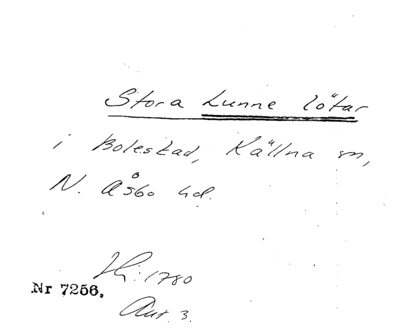 Stora Lunne lötar
i Bolestad, Källna sn,
N. Åsbo hd.
Lh: 1780
Nr 7256.
Akt. 3.